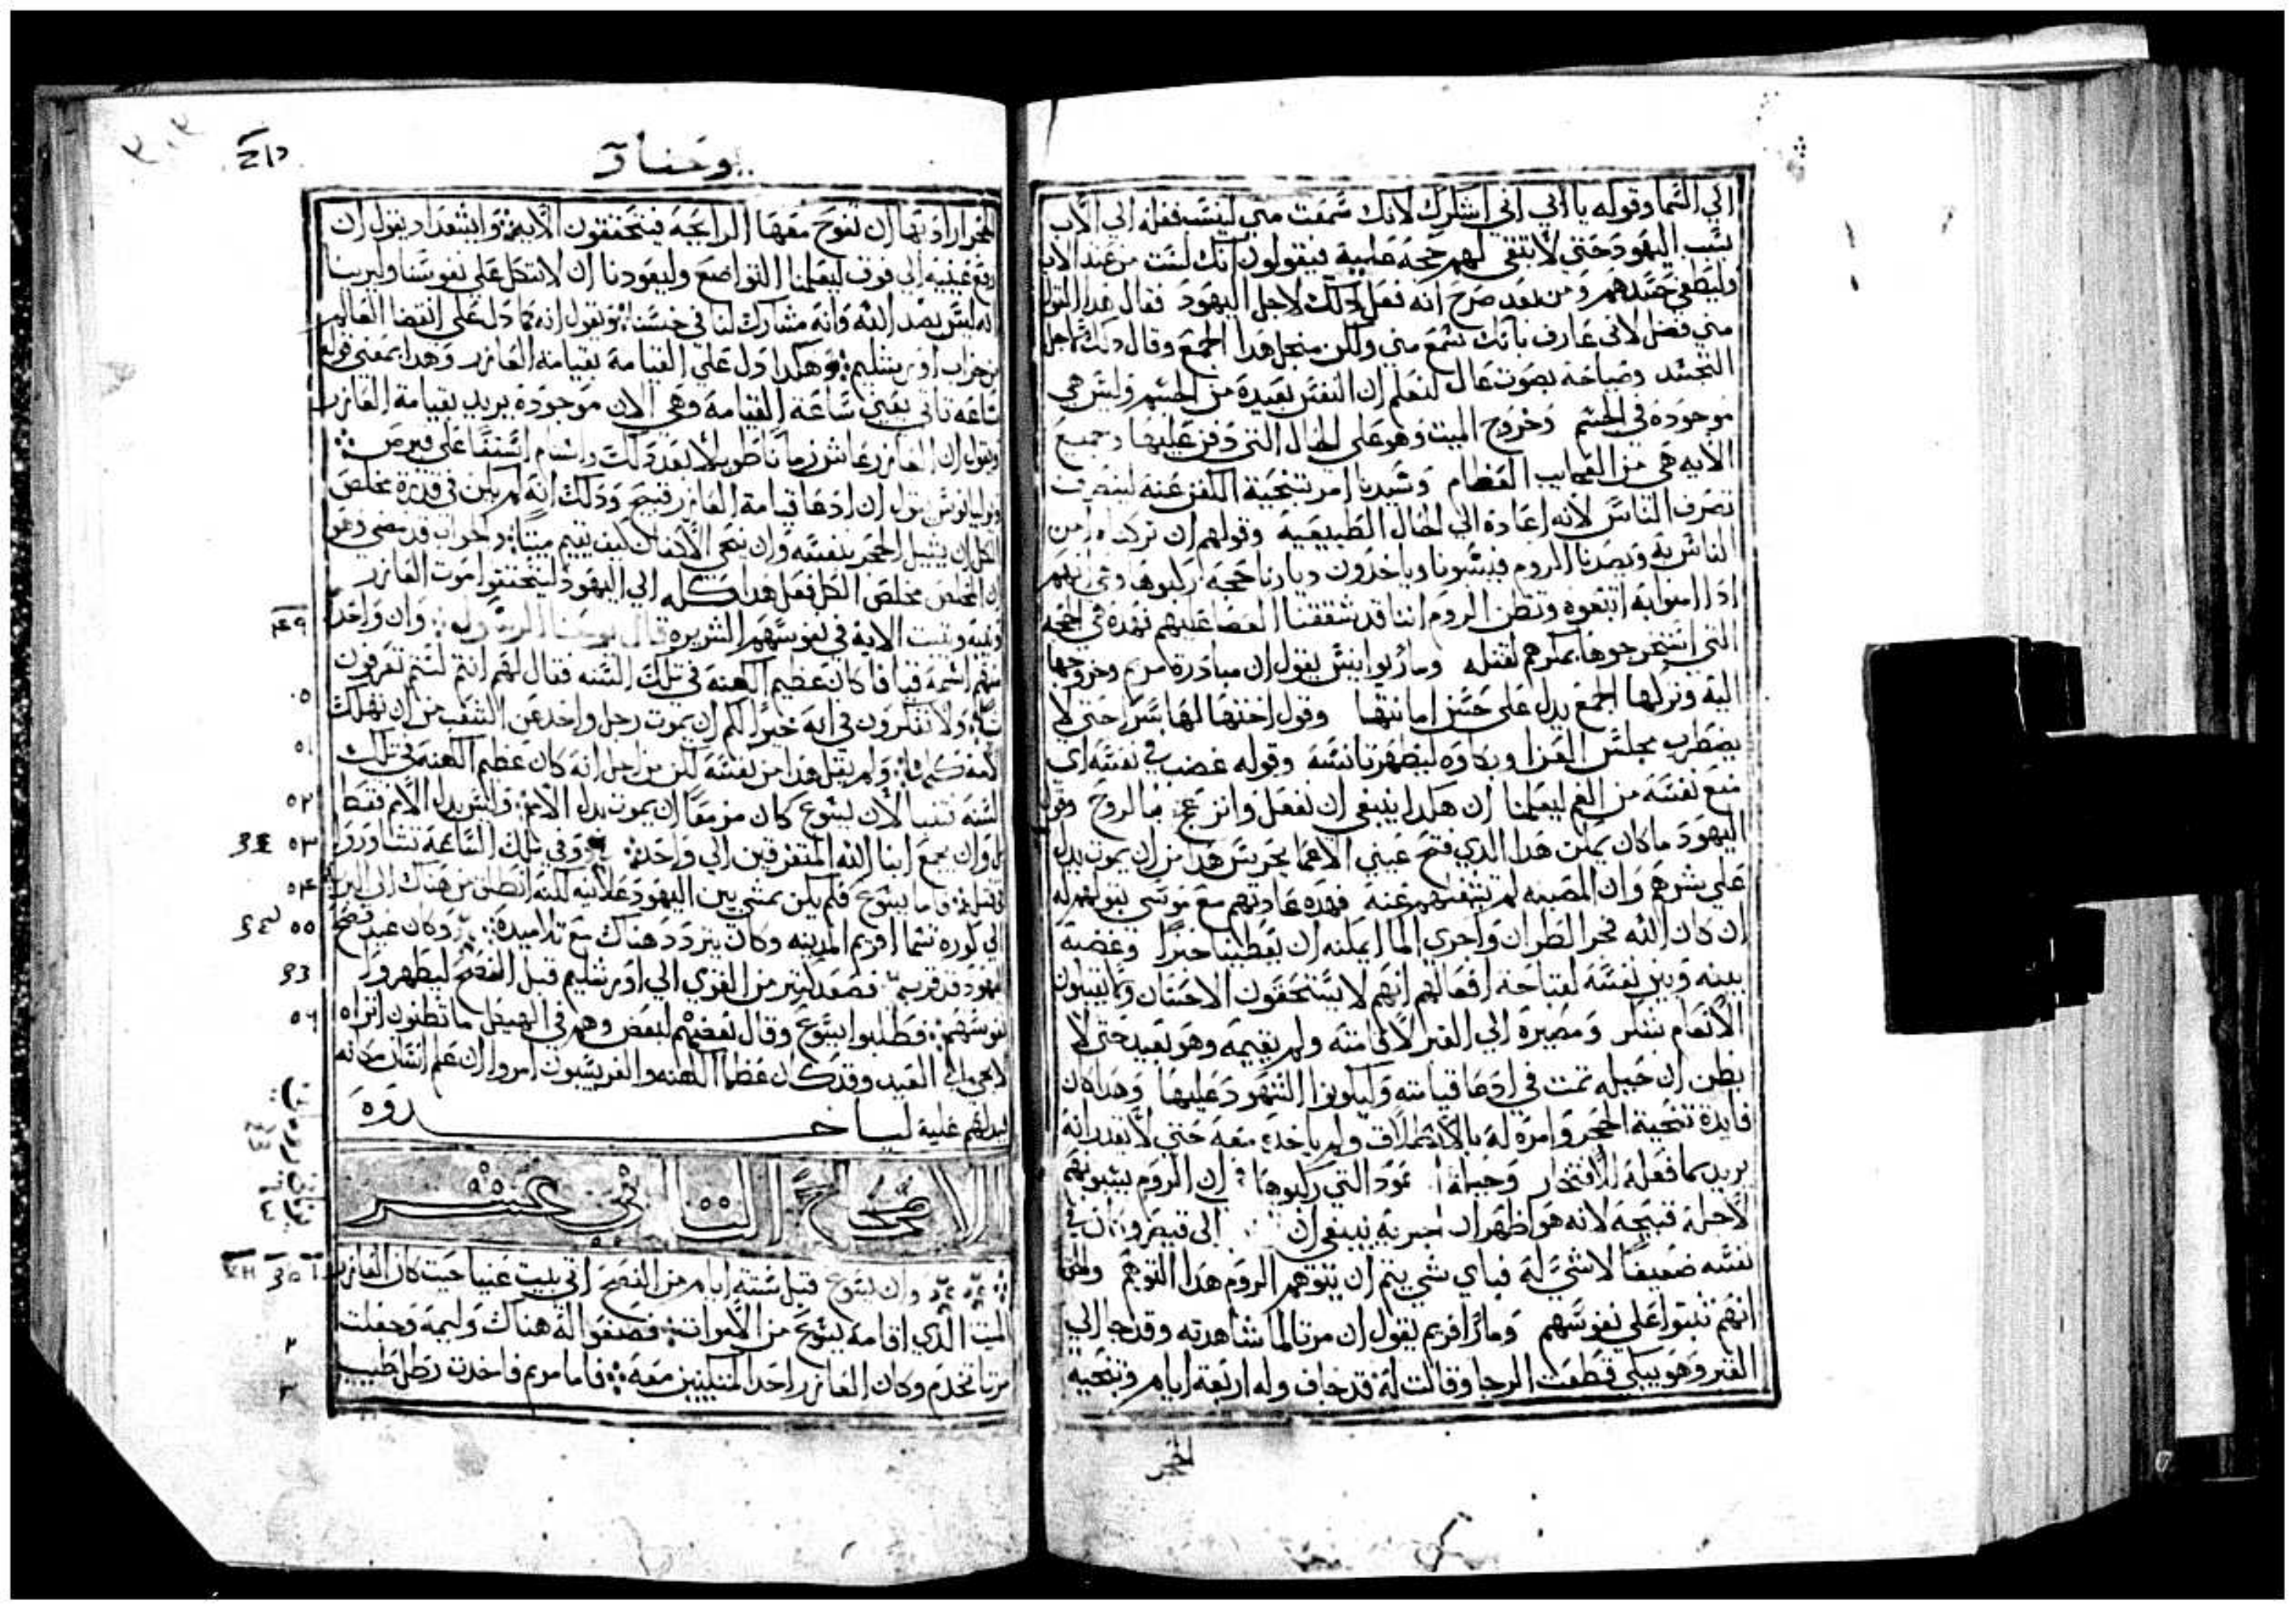 الي السما وقوله يا ابي اني اشكرك لانك سمعت مني لينسب فعله الي الاب
بسبب اليهود حتي لا تبقي لهم حجة عليه فيقولون انك لست من عند الاب
وليطفي حسدهم ومن بعد صرح انه فعل ذلك لاجل اليهود فقال هذا القول
مني فضل لاني عارف بانك تسمع مني ولكن من اجل هذا الجمع وقال ذلك لاجل
التجسد وصياحه بصوت عال لنعلم ان النفس بعيدة من الجسم وليس هي
موجودة في الجسم وخروج الميت وهو علي الحال التي دفن عليها وجميع
الايه هي من العجايب العظام وشيدنا امر تنحية الكفن عنه لينصرف
تصرف الناس لانه اعاده الي الحال الطبيعية وقولهم ان تركناه امن
الناس به وبصدنا الروم فيسبونا وياخذون ديارنا حجة ركبوها وهي انهم
اذا امنوا به اتبعوه وتظن الروم اننا قد شققنا العصا عليهم فهذه هي الحجة
التي استخرجوها بمكرهم لقتله ومار يوانيس يقول ان مبادرة مريم وخروجها
اليه وتركها الجمع يدل علي حسن امانتها وقول اختها لها سرا حتي لا
يضطرب مجلس العزا وبكاوه ليظهر تانسه وقوله غضب في نفسه اي
منع نفسه من الغم ليعلمنا ان هكذا ينبغي ان نفعل وانزعج بالروح وقول
اليهود ما كان يمكن هذا الذي فتح عيني الاعما يحرس هذا من ان يموت يدل
علي شرهم وان المصيبه لم تشغلهم عنه فهذه عادتهم مع موسي بقولهم له
ان كان الله فجر الظران واجري الما ايمكنه ان يعطينا خبزا وغضبه
بينه وبين نفسه لقباحة افعالهم انهم لا يستحقون الاحسان وما يقبلون
الانعام بشكر ومصيره الي القبر لاقامته ولم يقيمه وهو بعيد حتي لا
يظن ان حيله تمت في ادعا قيامته وليكونوا الشهود عليها وهذا كان
فايدة تنحية الحجر وامره له بالانطلاق ولم ياخذه معه حتي لا يقدر انه
يريد بما فعله للافتخار
لاجله قبيحه لانه هو اظهر ان الجزية ينبغي ان الي قيصر وبان في
نفسه ضعيفا لا شي له فباي شي يتم ان يتوهم الروم هذا التوهم وانما
انهم ثبتوا علي نفوسهم ومار افريم يقول ان مرتا لما شاهدته وقد جا الي
القبر وهو يبكي قطعت الرجا وقالت له قد جاف وله اربعة ايام وبتنحيه
الحجر
يوحنا
الحجر ارادتها ان تفوح معها الرايحة فيتحققون الاية وايشعداد يقول ان
رفع عينيه الي فوق ليعلمنا التواضع وليعودنا ان لا نتكل علي نفوسنا وليرينا
انه ليس بضد الله وانه مشارك لنا في جنسنا ونقول انه كما دل علي انقضا العالم
من خراب اورشليم وهكذا دل علي القيامة بقيامة العازر وهذا بمعني قوله
ساعة تاتي يعني ساعة القيامة وهي الان موجودة يريد بقيامة العازر
ونقول ان العازر عاش زمانا طويلا بعد ذلك واستام اسقفا علي قبرص
ويوليانوس يقول ان ادعا قيامة العازر قبيح وذلك انه لم يكن في قدرة مخلص
الكل ان يشيل الحجر بنفسه وان ينحي الاكفان كيف يقيم ميتا والجواب قد مضي وهو
ان مخلص الكل فعل هذا كله الي اليهود ليتحققوا موت العازر
وتثبت الاية في نفوسهم الشريرة قال يوحنا الرسول وان واحدا
منهم اسمه قيافا كان عظيم الكهنة في تلك السنه فقال لهم انتم لستم تعرفون
شيا ولا تفكرون في انه خير لكم ان يموت رجل واحد عن الشعب من ان تهلك
الامة كلها ولم يقل هذا من نفسه لكن من اجل انه كان عظيم الكهنه في تلك
السنه تنبيا لان يسوع كان مزمعا ان يموت بدل الامة وليس بدل الامة فقط
بل وان يجمع ابنا الله المتفرقين الي واحد وفي تلك الساعة تشاوروا
في قتله فاما يسوع فلم يكن يمشي بين اليهود علانيه لكنه انطلق من هناك الي البرية
الي كورة تسما افريم المدينه وكان يتردد هناك مع تلاميذه وكان عيد فصح
اليهود قد قرب فصعد كثير من القري الي اورشليم قبل الفصح ليطهروا
نفوسهم فطلبوا يسوع وقال بعضهم لبعض وهم في الهيكل ما تظنون اتراه
لا يجي الي العيد وقد كان عظما الكهنه والفريسيون امروا ان علم انسان مكانه
فيدلهم عليه لياخدوه
الاصحاح الثاني عشر
وان يسوع قبل ستة ايام من الفصح اتي بيت عنيا حيث كان العازر
الميت الذي اقامه يسوع من الاموات فصنعوا له هناك وليمة وجعلت
مرتا تخدم وكان العازر احد المتكيين معه فاما مريم فاخذت رطل طيب
٥٠
٥١
٥٢
٥٣
٥٤
٥٥
٥٦
٢
٣